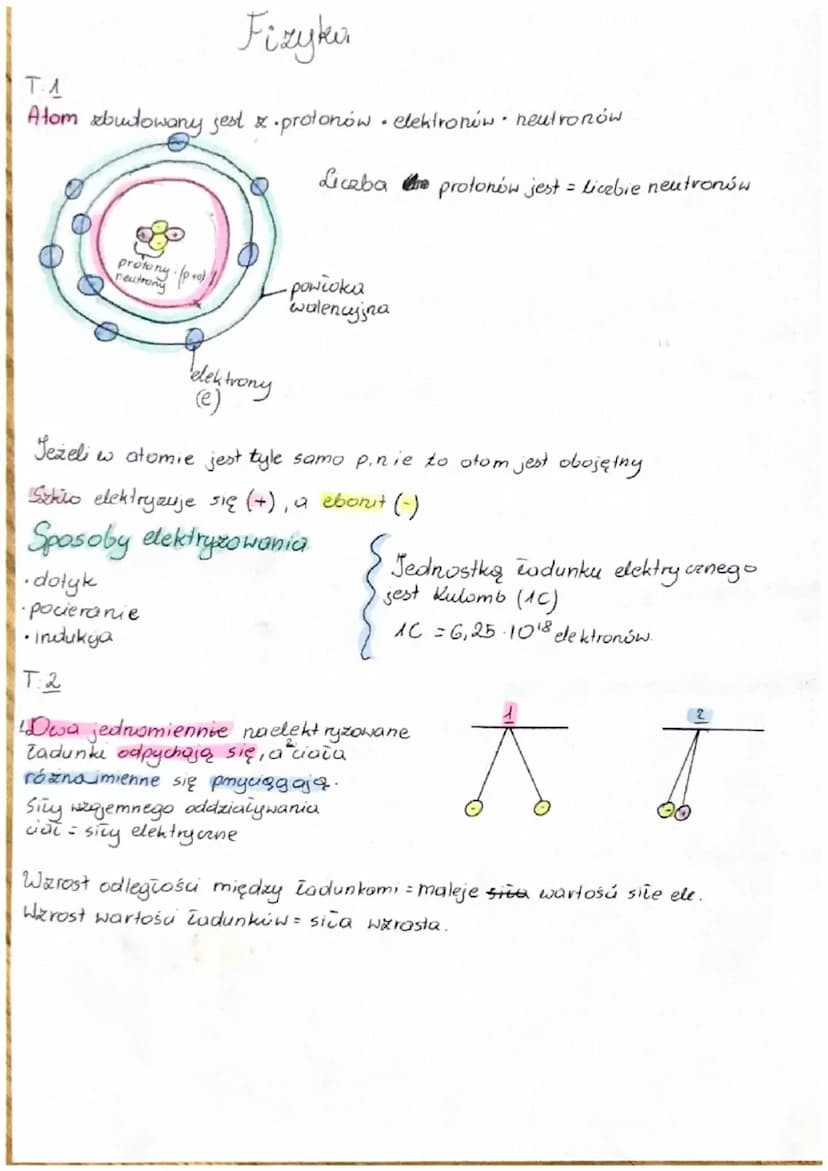 Fizyka
T.1
Atom zbudowany jest z • protonów • elektronów • neutronów
Liczba protonów jest = liczbie neutronów
protony
neutrony (p+o)
powłoka
walencyjna
elektrony
(e)
Jeżeli w atomie jest tyle samo p, n i e to atom jest obojętny
Szkło elektryzuje się (+), a ebonit (-)
Sposoby elektryzowania
• dotyk
• pocieranie
• indukcja
Jednostką ładunku elektrycznego
jest Kulomb (1C)
1C = 6,25 · 10¹⁸ elektronów.
T.2
1. Dwa jednomiennie naelektryzowane
ładunki odpychają się, a ² ciała
różnoimienne się przyciągają.
Siły wzajemnego oddziaływania
ciał = siły elektryczne
1
2
Wzrost odległości między ładunkami = maleje siła wartość siłe ele.
Wzrost wartości ładunków = siła wzrasta.